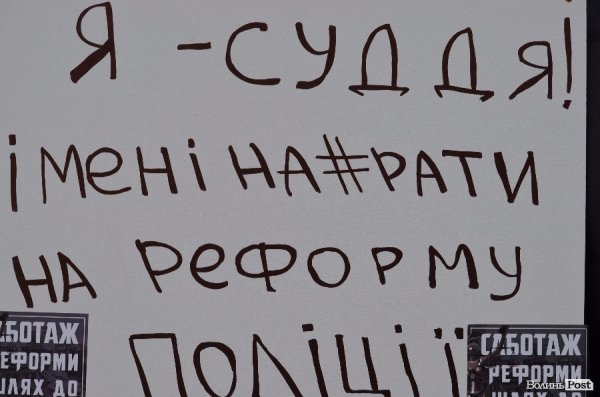 Я - СУДДЯ!
І МЕНІ НА#РАТИ
НА РЕФОРМУ
ПОЛІЦІЇ
САБОТАЖ
РЕФОРМИ
ШЛЯХ ДО
САБОТАЖ
РЕФОРМИ
ШЛЯХ ДО
Волинь Post